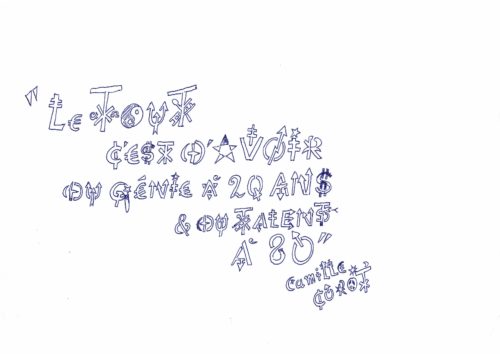 "Le TOUT
C'EST D'AVOIR
DU GÉNIE À 20 ANS
& DU TALENT
À 80"
Camille
COROT